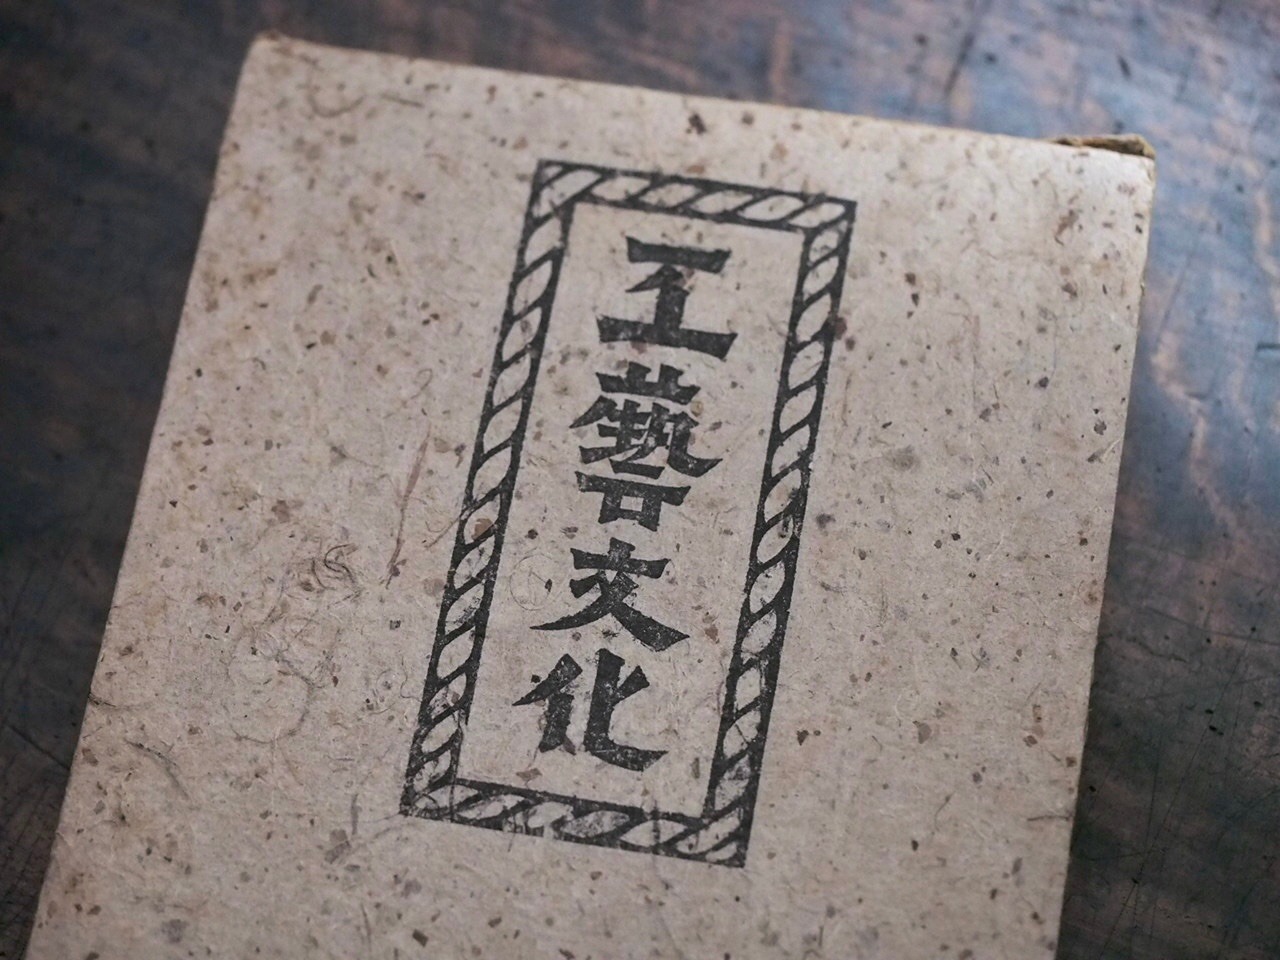 工藝文化